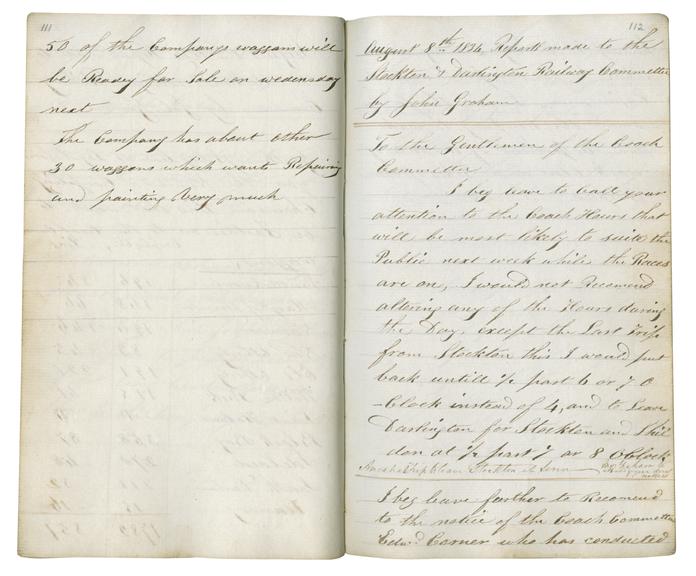 111
50 of the Companys waggons will
be Ready for Sale on wedensday
next
The Company has about other
30 waggons which wants Repairing
and painting Very much
112
August 8th 1834 Reports made to the
Stockton & Darlington Railway Committee
by John Graham
To the Gentlemen of the Coach
Committee
I beg leave to call your
attention to the Coach Hours that
will be most likely to suite the
Public next week while the Races
are on, I would not Recomend
altering any of the Hours during
the Day, except the Last Trip
from Stockton this I would put
back untill ½ past 6 or 7 O
-Clock instead of 4, and to Leave
Darlington for Stockton and Shil
don at ½ past 7 or 8 OClock
I beg leave farther to Recomend
to the notice of the Coach Committee
Edwd. Corner who has conducted